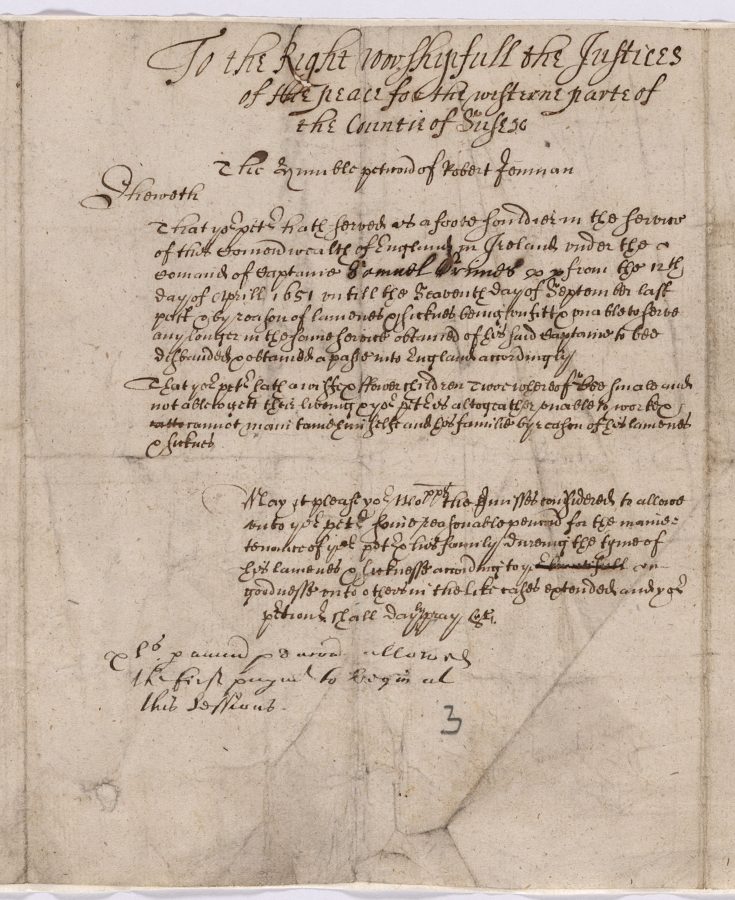 To the Right worshipfull the Justices
of the peace for the westerne parte of
the Countie of Sussex
The humble peticion of Robert Jenman
Sheweth
That yor petr hath served as a foote souldier in the service
of this Comonwealth of England in Ireland under the
Comand of Captaine Samuel from the 12th
day of Aprill 1651 untill the Seaventh day of September last
past & by reason of lamenes & sicknes being unfitt & unable to serve
any longer in the same service obtained of his said Captaine to bee
disbanded & obtained a passe into England accordingly
That yor petr hath a wife & fower children Twoe whereof bee smale and
not able to gett their liveing & yor petr is altogeather unable to worke &
cannot maintaine himselfe and his familie by reason of his lamenes
& sicknes
May it please yor Worpps the premisses considered to allowe
unto yor petr some reasonable pencion for the maine-
tenance of yor petr & his family dureing the tyme of
his lamenes & sicknesse according to yor
goodnesse unto others in the like cases extended and yor
peticionr shall dayly pray &c.
xls. p annum pencion allowed
the first paymt to begin at
this sessions.
3